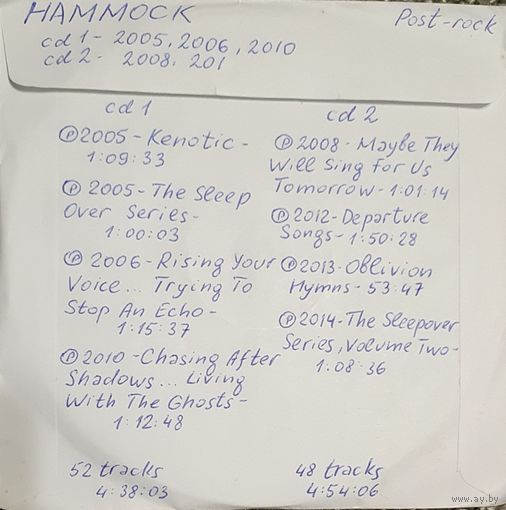 HAMMOCK Post-rock
cd 1 - 2005, 2006, 2010
cd 2 - 2008, 201
cd 1
Ⓟ 2005 - Kenotic -
1:09:33
Ⓟ 2005 - The Sleep
Over Series -
1:00:03
Ⓟ 2006 - Rising Your
Voice... Trying To
Stop An Echo -
1:15:37
Ⓟ 2010 - Chasing After
Shadows... Living
With The Ghosts -
1:12:48
52 tracks
4:38:03
cd 2
Ⓟ 2008 - Maybe They
Will Sing For Us
Tomorrow - 1:01:14
Ⓟ 2012 - Departure
Songs - 1:50:28
Ⓟ 2013 - Oblivion
Hymns - 53:47
Ⓟ 2014 - The Sleepover
Series, Volume Two -
1:08:36
48 tracks
4:54:06
www.ay.by